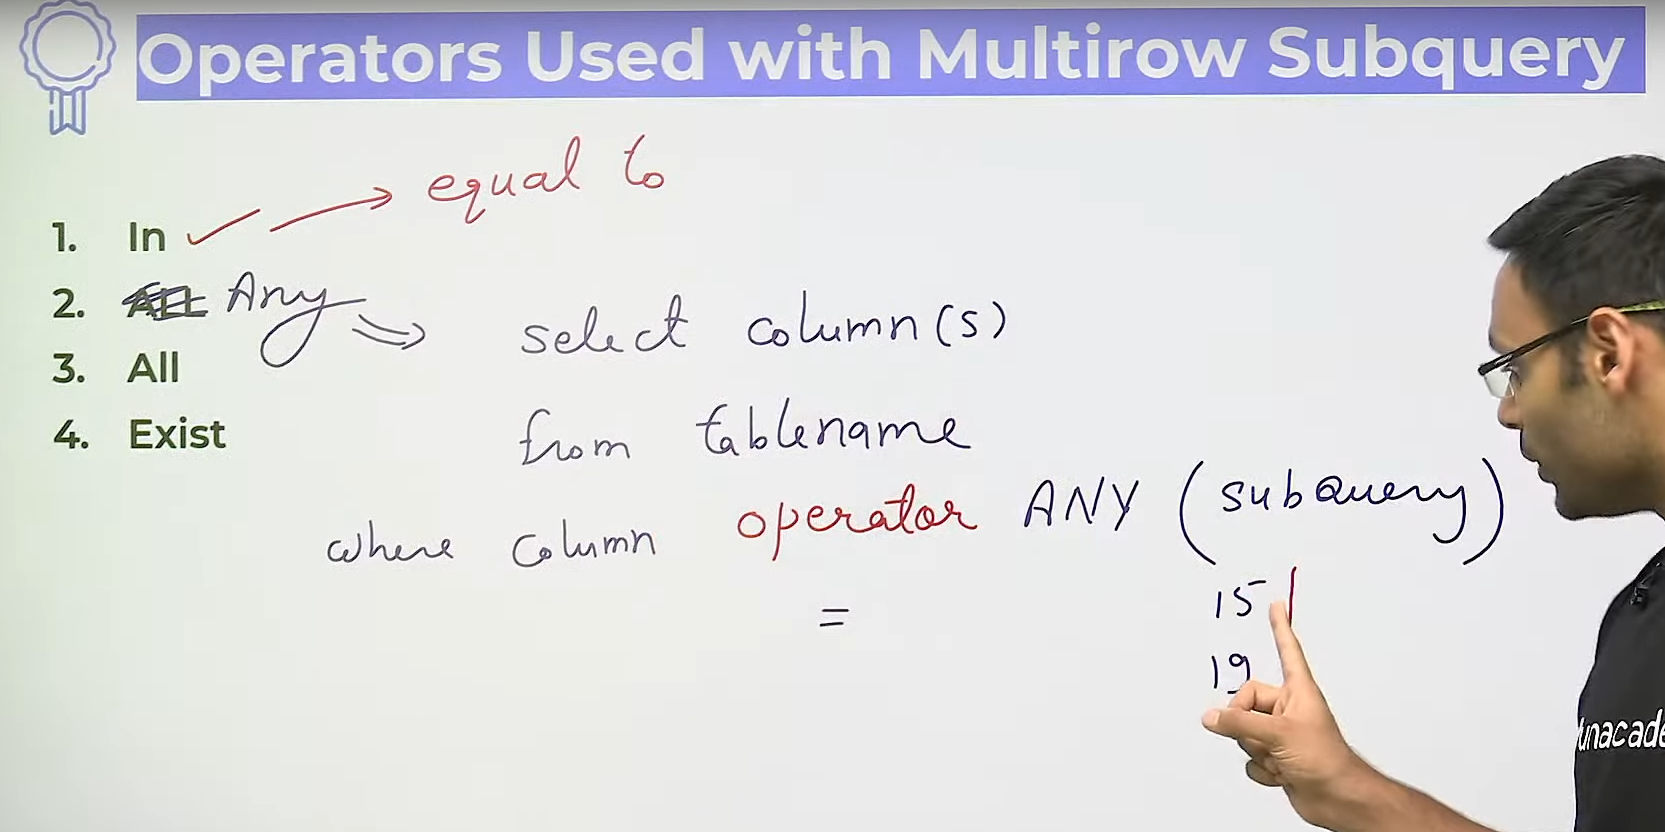 Operators Used with Multirow Subquery
equal to
1. In
2. ALL Any
select column(s)
3. All
from tablename
4. Exist
where column operator ANY (subquery)
=
15
19
unacade